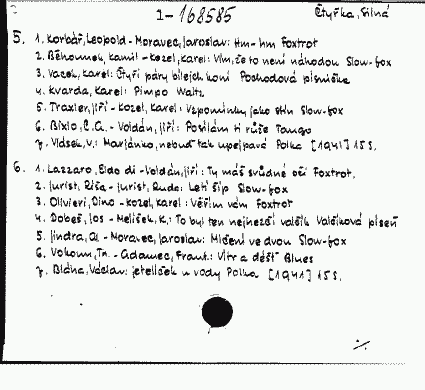 1-168585
Čtyřka, Silná
5. 1. Korbář, Leopold - Moravec, Jaroslav: Hm-hm Foxtrot
2. Běhounek, Kamil - Kozel, Karel: Vím, že to není náhodou Slow-fox
3. Vacek, Karel: Čtyři páry bílejch koní Pochodová písnička
4. Kvarda, Karel: Pimpo Waltz
5. Traxler, Jiří - Kozel, Karel: Vzpomínky jako stín Slow-fox
6. Bixio, C.A. - Voldán, Jiří: Posílám ti růže Tango
7. Vlasek, V.: Marjánko, nebuď tak upejpavá Polka [1941] 15 s.
6. 1. Lazzaro, Eldo di - Voldán, Jiří: Ty máš svůdné oči Foxtrot.
2. Jurist, Ríša - Jurist, Ruda: Letí šíp Slow-fox
3. Olivieri, Dino - Kozel, Karel: Věřím vám Foxtrot
4. Dobeš, Jos - Melíšek, K.: To byl ten nejhezčí valčík Valčíková píseň
5. Jindra, Al - Moravec, Jaroslav: Mlčení ve dvou Slow-fox
6. Vokoun, - Adamec, Frant.: Vítr a déšť Blues
7. Bláha, Václav: Jetelíček u vody Polka [1941] 15 s.